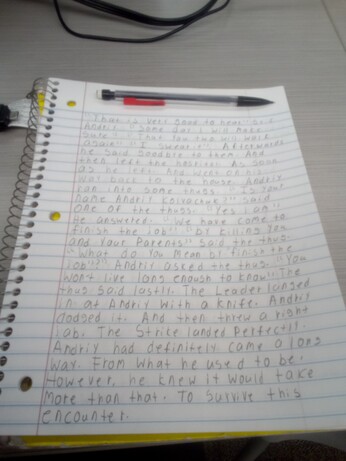 "That is very good to hear" said
Andriy. "Some day I will make
sure". "That you two will walk
again" "I swear". Afterwards
he said Goodbye to them And
then left the As soon
as he left. And went on his
way back to the house. Andriy
ran into some thugs. "Is Your
name Andriy Kovalchuk?" said
one of the thugs. "Yes I am"
He answered. "We have come to
finish the job" "by killing You
and Your Parents" Said the thug.
"What do You Mean by finish the
job?" Andriy asked the thug. "You
wont live long enough to know" The
thug Said lastly. The Leader lunged
in at Andriy with a knife. Andriy
dodged it. And then threw a right
jab. The Strike landed Perfectly.
Andriy had definitely came a long
way. From what he used to be.
However, he knew it would take
More than that. To survive this
encounter.